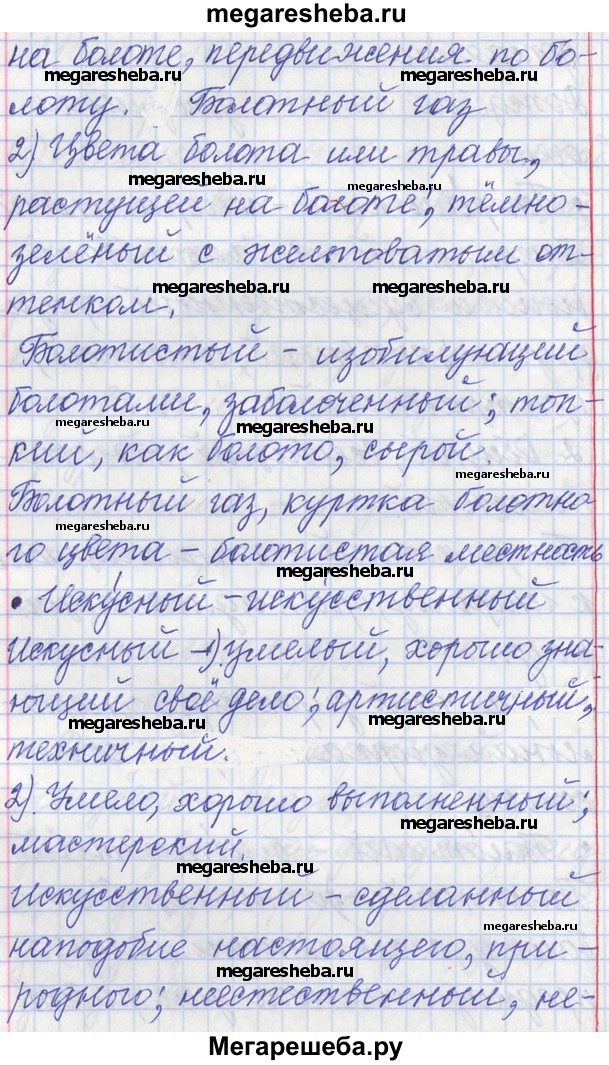 megaresheba.ru
на болоте, передвижения по бо-
megaresheba.ru megaresheba.ru
лоту. Болотный газ
2) Цвета болота или травы,
megaresheba.ru megaresheba.ru
растущей на болоте; тёмно-
зелёный с желтоватым от-
megaresheba.ru megaresheba.ru
тенком.
Болотистый - изобилующий
болотами, заболоченный; топ-
megaresheba.ru megaresheba.ru
кий, как болото, сырой.
megaresheba.ru
Болотный газ, куртка болотно
megaresheba.ru
го цвета - болотистая местность
megaresheba.ru
• Искусный - искусственный
Искусный - 1) умелый, хорошо зна-
ющий своё дело; артистичный,
megaresheba.ru megaresheba.ru
техничный.
2). Умело, хорошо выполненный;
megaresheba.ru
мастерский.
megaresheba.ru
Искусственный - сделанный
megaresheba.ru
наподобие настоящего, при-
megaresheba.ru
родного; неестественный, не-
megaresheba.ru
Мегарешеба.ру